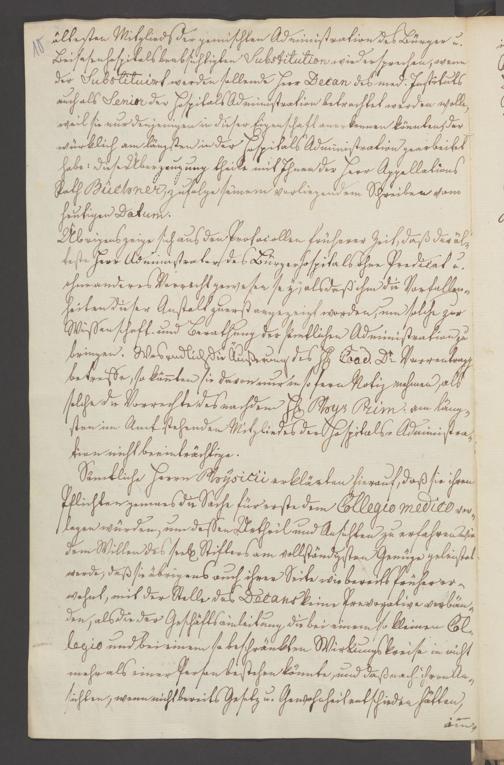 18
ältesten Mitglieds der gemischten Administration des Bürger u.
Beisassenhospitals beabsichtigten Substitution widersprechen, wenn
der Substituirt werden sollende Herr Decan des med. Instituts
auch als Senior der Hospitals Administration betrachtet werden wolle,
weil sie nur denjenigen in dieser Eigenschaft anerkennen könnten der
würklich am längsten in der Hospitals Administration gearbeitet
habe: diese Überzeugung theile mit Ihnen der Herr Appellations
Rath Buchner, zufolge seinem vorliegenden Schreiben vom
heutigen Datum.
Übrigens zeige sich aus den Protocollen früherer Zeit, daß der äl-
teste Herr Administrator des Bürgerhospitals ohne Predicat u.
ohne anderes Vorrecht gewesen seye, als daß ihm die Vorfallen-
heiten dieser Anstalt zuerst angezeigt worden, um solche zur
Wissenschaft und Berathung der sämtlichen Administration zu
bringen. Was endlich die Äußerung des H. Cand. Dr. Varrentrapp
betreffe, so könnten sie davon nur in so fern Notiz nehmen als
solche die Vorrechte des nach dem H. Phys. Reim. am läng-
sten im Amt stehenden Mitgliedes der Hospitals Administra-
tion nicht beeinträchtige.
Sämtliche Herrn Physicii erklärten hierauf, daß sie ihren
Pflichten gemaes die Sache für erst dem Collegio medico vor-
legen würden, um dessen Urtheil und Ansichten zu erfahren
dem Willen des seel. Stifters am vollständigsten Genüge geleistet
werde, daß sie übrigens auch ihrer Seits wie bereits früher er-
wehnt, mit der Stelle des Decans keine Prerogative verbän-
den, als die der Geschäftsanleitung, die bei einem so kleinen Col-
legio und bei einem so beschränkten Wirkungskreise in nicht
mehr als einer Person bestehen könnte, und daß nach ihren An-
sichten, wenn nicht bereits Gesetz u. Gewohnheit entschieden hätten,